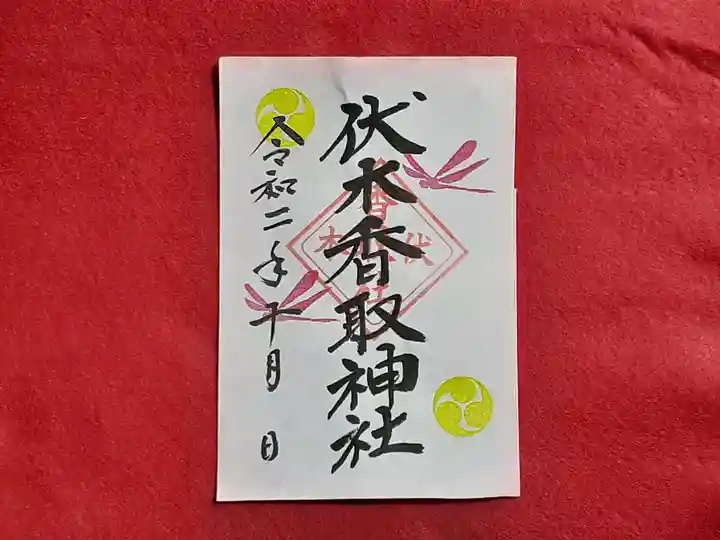 伏木香取神社
令和二年十月 日